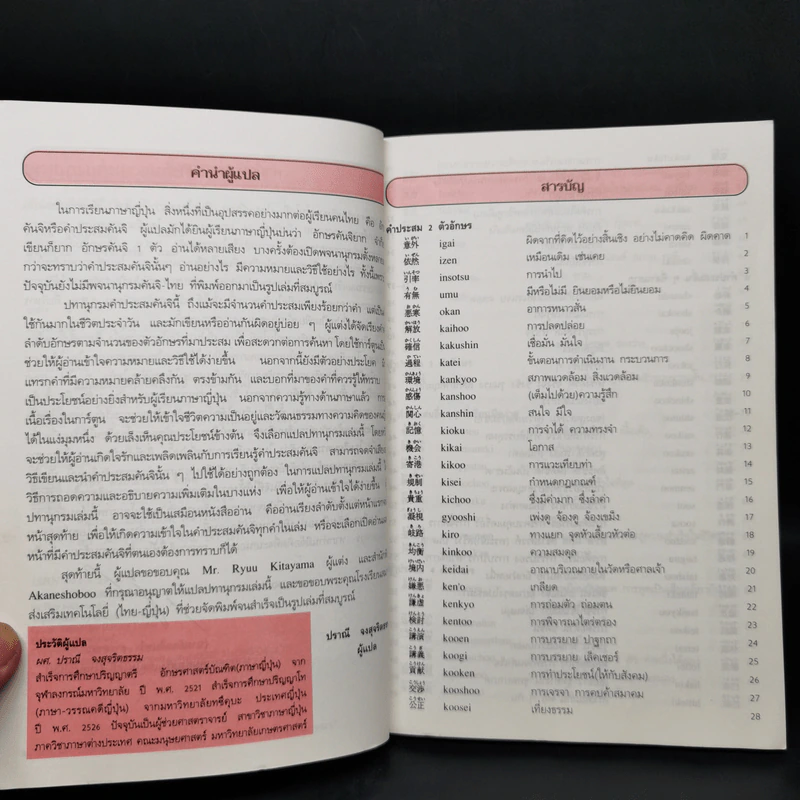 คำนำผู้แปล
ในการเรียนภาษาญี่ปุ่น สิ่งหนึ่งที่เป็นอุปสรรคอย่างมากต่อผู้เรียนคนไทย คือ
คันจิหรือคำประสมคันจิ ผู้แปลมักได้ยินผู้เรียนภาษาญี่ปุ่นบ่นว่า อักษรคันจิยาก
เขียนก็ยาก อักษรคันจิ 1 ตัว อ่านได้หลายเสียง บางครั้งต้องเปิดพจนานุกรมตั้งหลาย
กว่าจะทราบว่าคำประสมคันจินั้นๆ อ่านอย่างไร มีความหมายและวิธีใช้อย่างไร
ปัจจุบันยังไม่มีพจนานุกรมคันจิ-ไทย ที่พิมพ์ออกมาเป็นรูปเล่มที่สมบูรณ์
ปทานุกรมคำประสมคันจินี้ ถึงแม้จะมีจำนวนคำประสมเพียงร้อยกว่าคำ แต่
ใช้กันมากในชีวิตประจำวัน และมักเขียนหรืออ่านกันผิดอยู่บ่อย ๆ ผู้แต่งได้จัดเรียง
ลำดับอักษรตามจำนวนของตัวอักษรที่มาประสม เพื่อสะดวกต่อการค้นหา โดยใช้การ์ตูน
ช่วยให้ผู้อ่านเข้าใจความหมายและวิธีใช้ได้ง่ายขึ้น นอกจากนี้ยังมีตัวอย่างประโยค
แทรกคำที่มีความหมายคล้ายคลึงกัน ตรงข้ามกัน และบอกที่มาของคำที่ควรรู้ให้ทราบ
เป็นประโยชน์อย่างยิ่งสำหรับผู้เรียนภาษาญี่ปุ่น นอกจากความรู้ทางด้านภาษาแล้ว
เนื้อเรื่องในการ์ตูน จะช่วยให้เข้าใจชีวิตความเป็นอยู่และวัฒนธรรมทางความคิดของ
ได้ในแง่มุมหนึ่ง ด้วยเล็งเห็นคุณประโยชน์ข้างต้น จึงเลือกแปลปทานุกรมเล่มนี้
จะช่วยให้ผู้อ่านเกิดใจรักและเพลิดเพลินกับการเรียนรู้คำประสมคันจิ สามารถจดจำ
วิธีเขียนและนำคำประสมคันจินั้น ๆ ไปใช้ได้อย่างถูกต้อง ในการแปลปทานุกรมเล่มนี้
วิธีการถอดความและอธิบายความเพิ่มเติมในบางแห่ง เพื่อให้ผู้อ่านเข้าใจได้ง่ายขึ้น
ปทานุกรมเล่มนี้ อาจจะใช้เป็นเสมือนหนังสืออ่าน คืออ่านเรียงลำดับตั้งแต่หน้าแรก
หน้าสุดท้าย เพื่อให้เกิดความเข้าใจในคำประสมคันจิทุกคำในเล่ม หรือจะเลือกเปิดอ่าน
หน้าที่มีคำประสมคันจิที่ตนเองต้องการทราบก็ได้
สุดท้ายนี้ ผู้แปลขอขอบคุณ Mr. Ryuu Kitayama ผู้แต่ง และสำนัก
Akaneshoboo ที่กรุณาอนุญาตให้แปลปทานุกรมเล่มนี้ และขอขอบพระคุณโรงเรียน
ส่งเสริมเทคโนโลยี (ไทย-ญี่ปุ่น) ที่ช่วยจัดพิมพ์จนสำเร็จเป็นรูปเล่มที่สมบูรณ์
ปราณี จงสุจริต
ผู้แปล
ประวัติผู้แปล
ผศ. ปราณี จงสุจริตธรรม
สำเร็จการศึกษาปริญญาตรี อักษรศาสตร์บัณฑิต(ภาษาญี่ปุ่น) จาก
จุฬาลงกรณ์มหาวิทยาลัย ปี พ.ศ. 2521 สำเร็จการศึกษาปริญญาโท
(ภาษา-วรรณคดีญี่ปุ่น) จากมหาวิทยาลัยทซึคุบะ ประเทศญี่ปุ่น
ปี พ.ศ. 2526 ปัจจุบันเป็นผู้ช่วยศาสตราจารย์ สาขาวิชาภาษาญี่ปุ่น
ภาควิชาภาษาต่างประเทศ คณะมนุษยศาสตร์ มหาวิทยาลัยเกษตรศาสตร์
สารบัญ
คำประสม 2 ตัวอักษร
意外 igai ผิดจากที่คิดไว้อย่างสิ้นเชิง อย่างไม่คาดคิด ผิดคาด 1
依然 izen เหมือนเดิม เช่นเคย 2
引率 insotsu การนำไป 3
有無 umu มีหรือไม่มี ยินยอมหรือไม่ยินยอม 4
悪寒 okan อาการหนาวสั่น 5
解放 kaihoo การปลดปล่อย 6
確信 kakushin เชื่อมั่น มั่นใจ 7
過程 katei ขั้นตอนการดำเนินงาน กระบวนการ 8
環境 kankyoo สภาพแวดล้อม สิ่งแวดล้อม 9
感傷 kanshoo (เต็มไปด้วย)ความรู้สึก 10
関心 kanshin สนใจ มีใจ 11
記憶 kioku การจำได้ ความทรงจำ 12
機会 kikai โอกาส 13
寄港 kikoo การแวะเทียบท่า 14
規制 kisei กำหนดกฎเกณฑ์ 15
貴重 kichoo ซึ่งมีค่ามาก ซึ่งล้ำค่า 16
凝視 gyooshi เพ่งดู จ้องดู จ้องเขม็ง 17
岐路 kiro ทางแยก จุดหัวเลี้ยวหัวต่อ 18
均衡 kinkoo ความสมดุล 19
境内 keidai อาณาบริเวณภายในวัดหรือศาลเจ้า 20
嫌悪 ken'o เกลียด 21
謙虚 kenkyo การถ่อมตัว ถ่อมตน 22
検討 kentoo การพิจารณาไตร่ตรอง 23
講演 kooen การบรรยาย ปาฐกถา 24
講義 koogi การบรรยาย เล็คเชอร์ 25
貢献 kooken การทำประโยชน์(ให้กับสังคม) 26
交渉 kooshoo การเจรจา การคบค้าสมาคม 27
公正 koosei เที่ยงธรรม 28